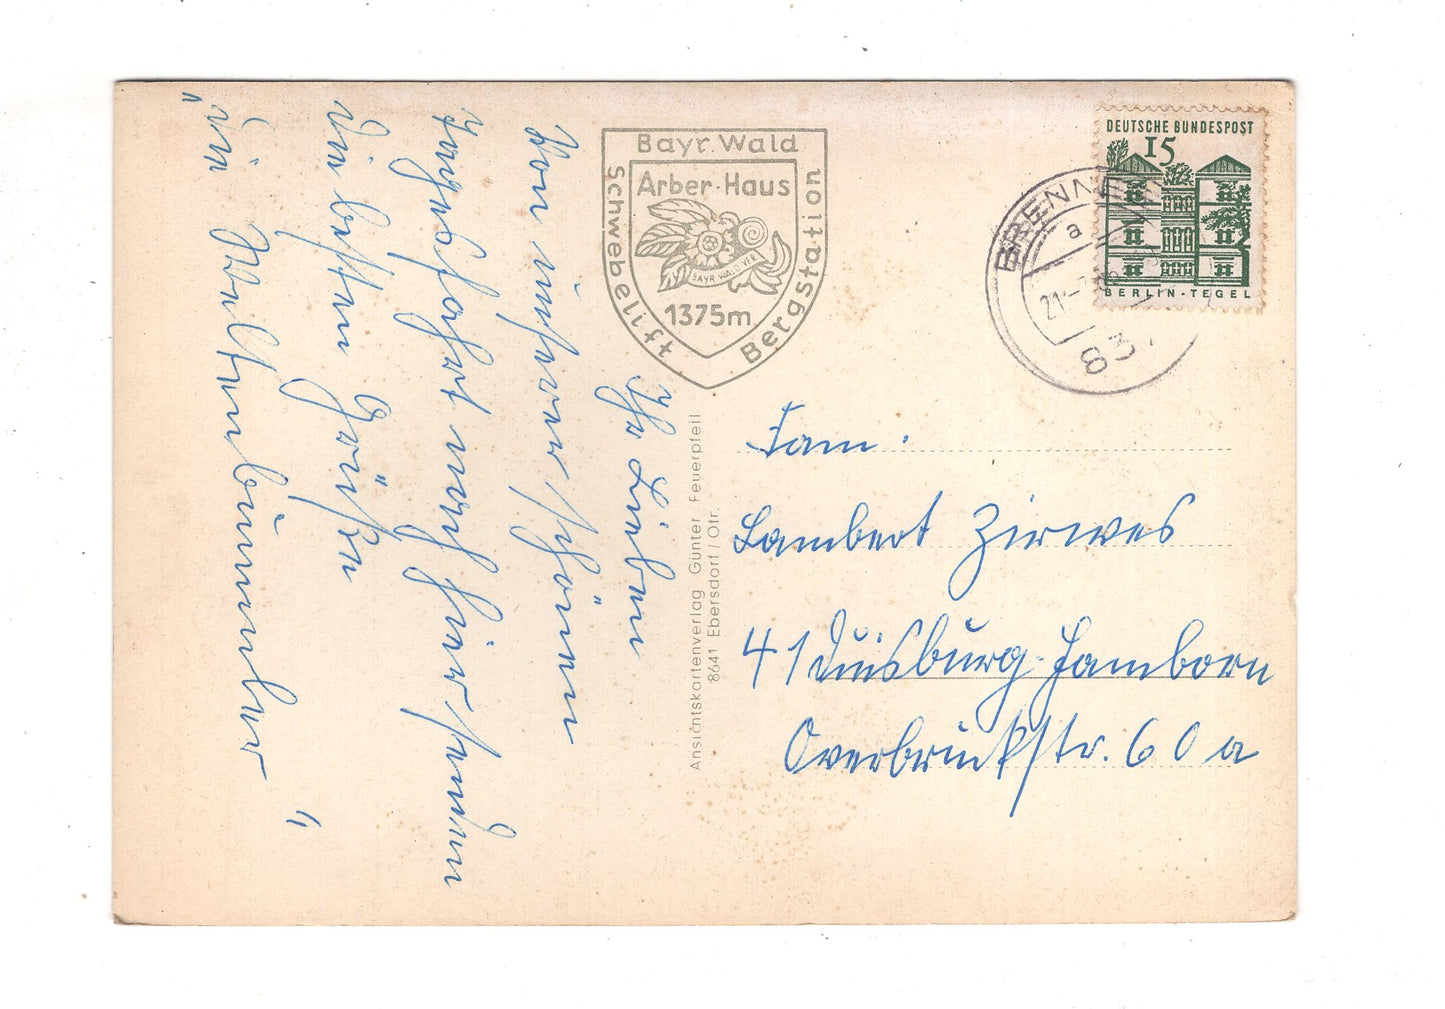 Ihr Lieben
Von unserer schönen
Tagesfahrt nach hier senden
die besten Grüße
"die Weltenbummler"
Bayr. Wald
Arber-Haus
BAYR WALD VER
1375m
Schwebelift
Bergstation
Ansichtskartenverlag Günter Feuerpfeil
8641 Ebersdorf/Ofr.
DEUTSCHE BUNDESPOST
15
BERLIN-TEGEL
BRENNE
a
21.-7.
837
Fam.
Lambert Zirwes
41 Duisburg-Hamborn
Overbruckstr. 60 a